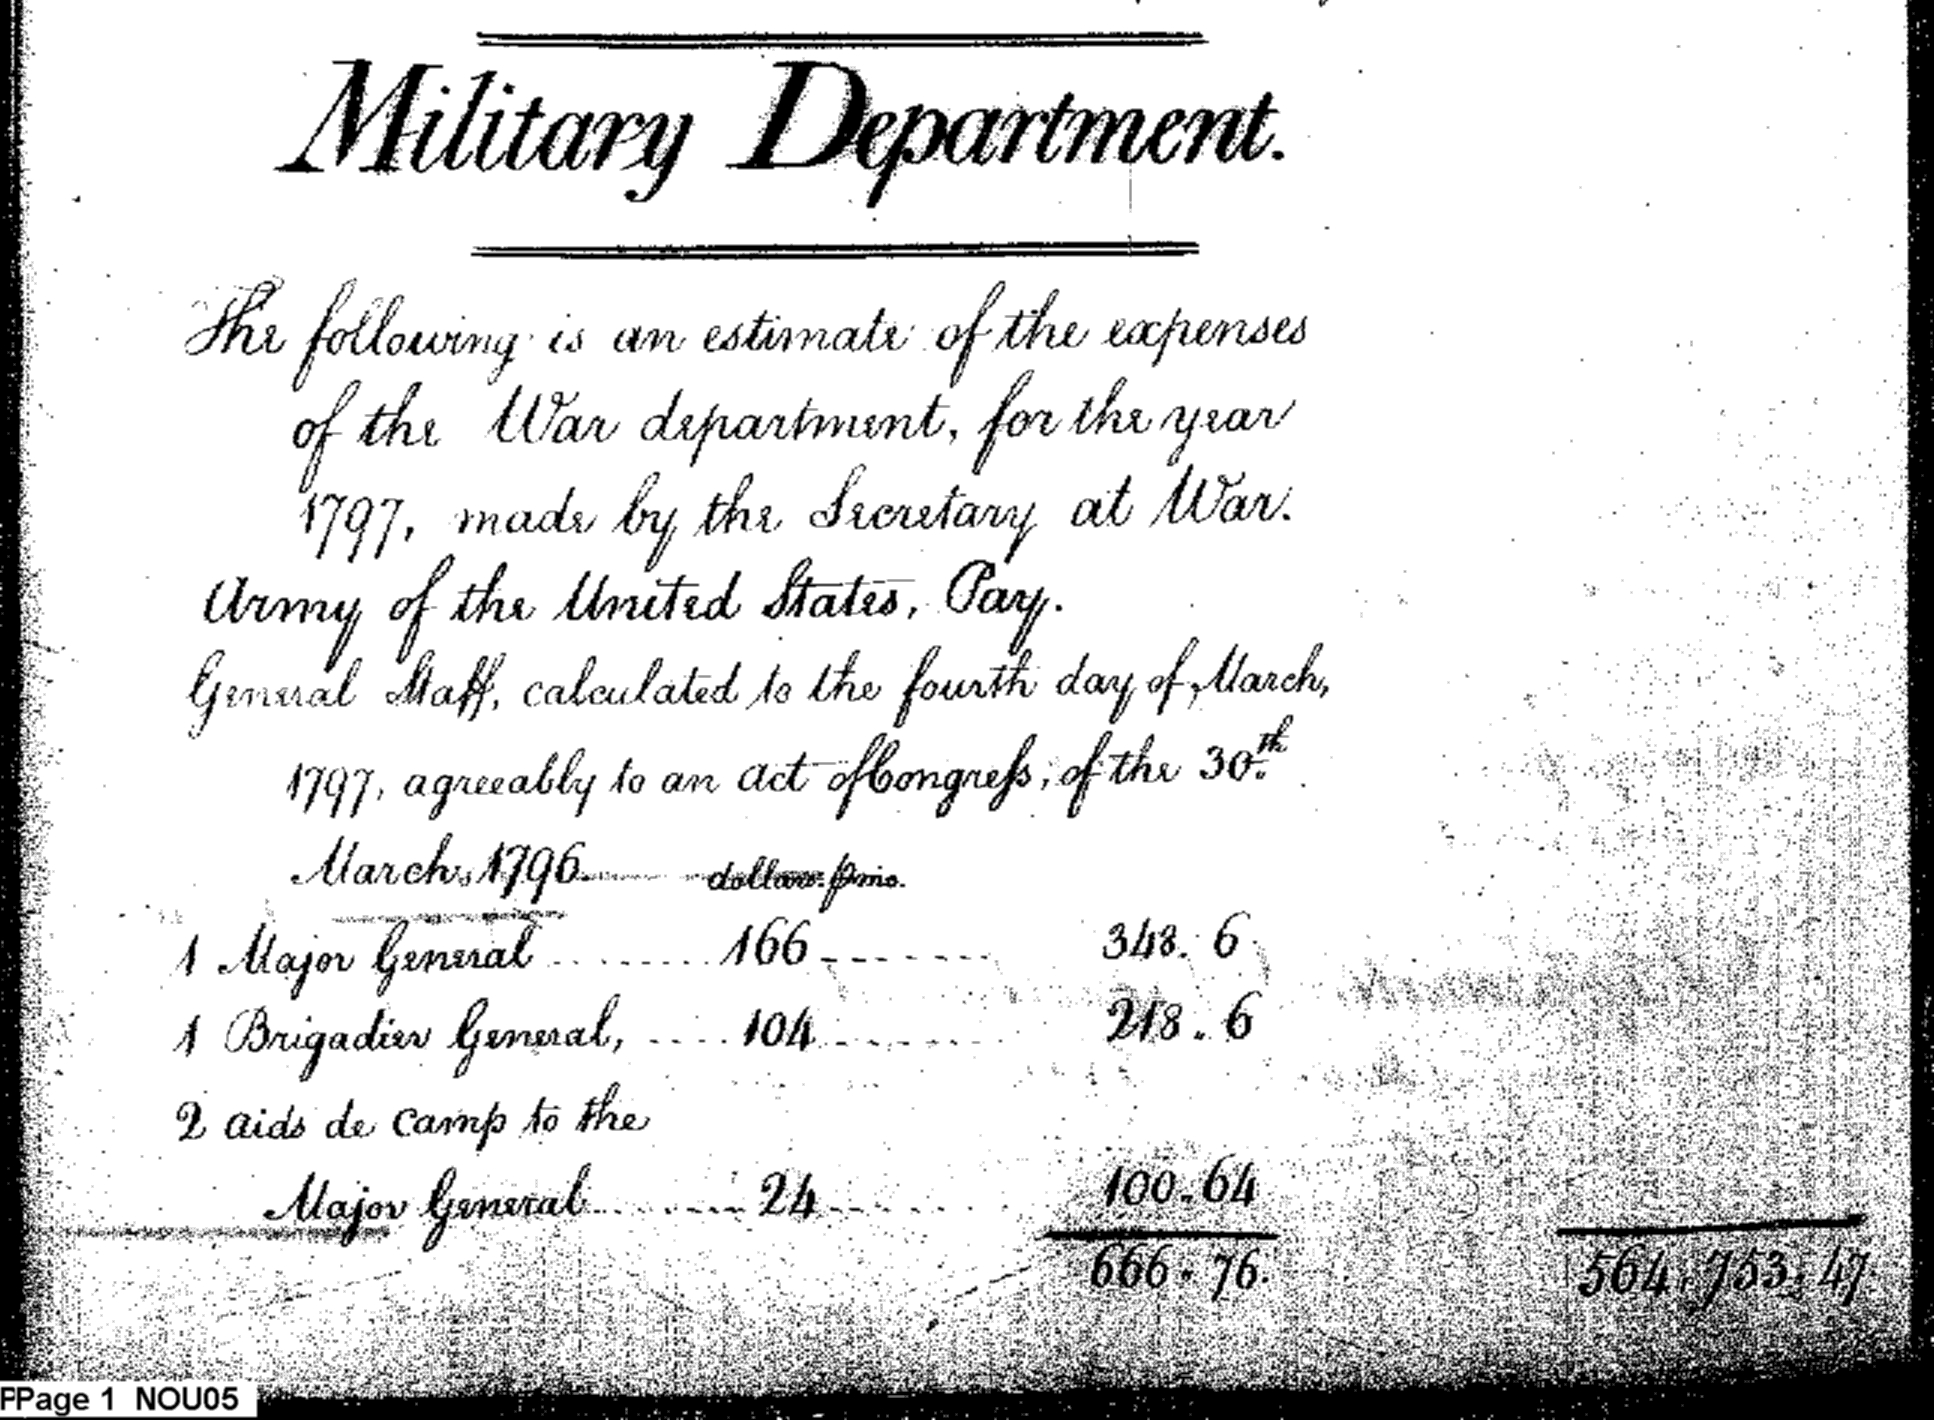 Military Department.
The following is an estimate of the expenses
of the War department, for the year
1797, made by the Secretary at War.
Army of the United States, Pay.
General Staff, calculated to the fourth day of March,
1797, agreeably to an act of Congreſs, of the 30.th
March, 1796 dollars. p mo.
1 Major General ........ 166 ........ 348. 6
1 Brigadier General, .... 104 ........ 218. 6
2 aids de camp to the
Major General ........ 24 ........ 100. 64
666. 76. 564. 753. 47
PPage 1 NOU05